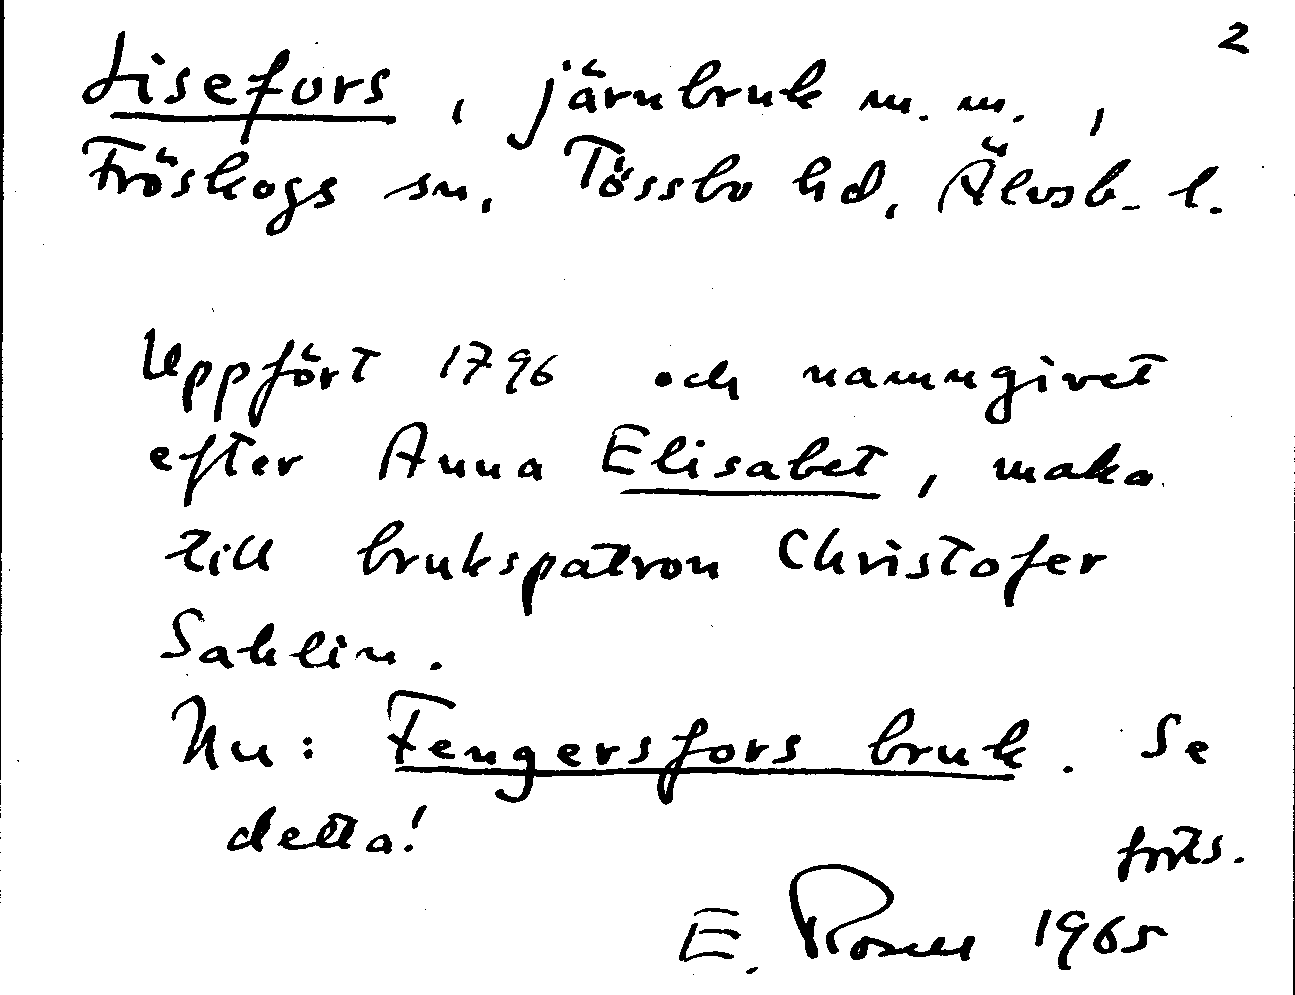 2
Lisefors, järnbruk m.m.,
Fröskogs sn, Tössbo hd, Älvsb. l.
Uppfört 1796 och namngivet
efter Anna Elisabet, maka
till brukspatron Christofer
Sahlin.
Nu: Fengersfors bruk. Se
detta!
forts.
E. Rosell 1965